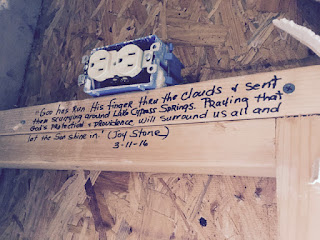 "God has run His finger thru the clouds & sent
them scurrying around Lake Cypress Springs. Praying that
God's Protection & Providence will surround us all and
let the Son shine in." (Joy Stone)
3-11-16